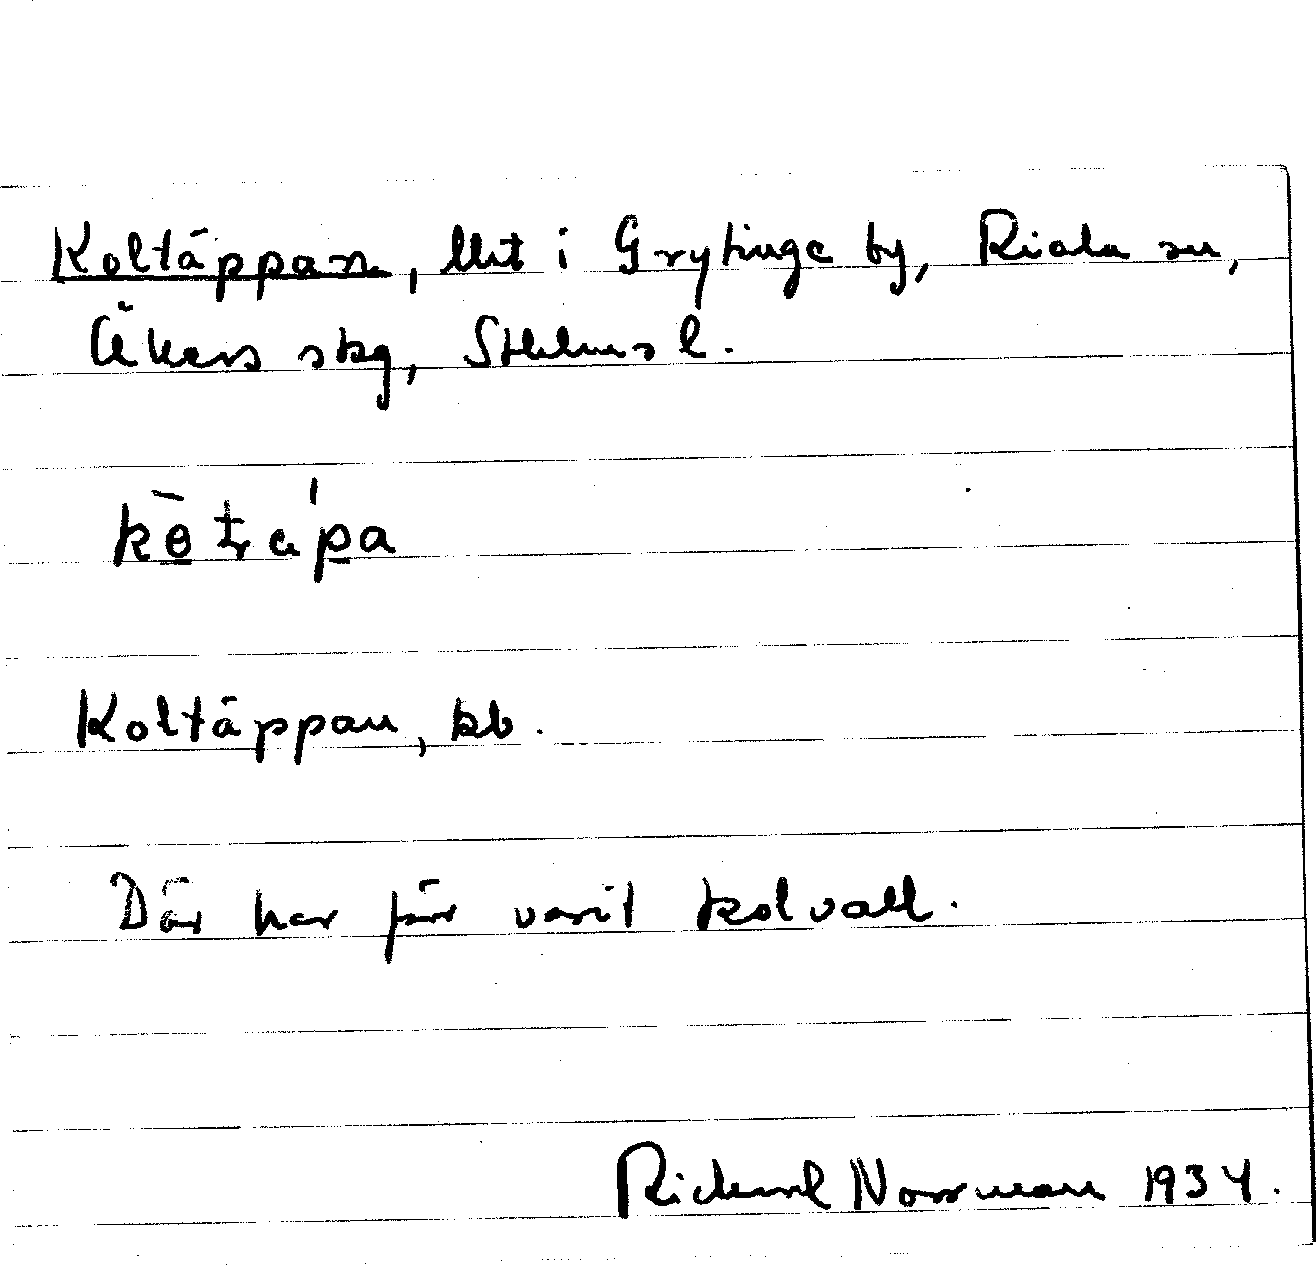 Koltäppan, llht i Grytinge by, Riala sn,
Åkers skg, Sthlms l.
kөtrápa
Koltäppan, kb.
Där har förr varit kolvall.
Rickard Norrman 1934.